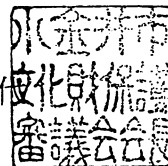 小金井市
文化財保護
審議会会長